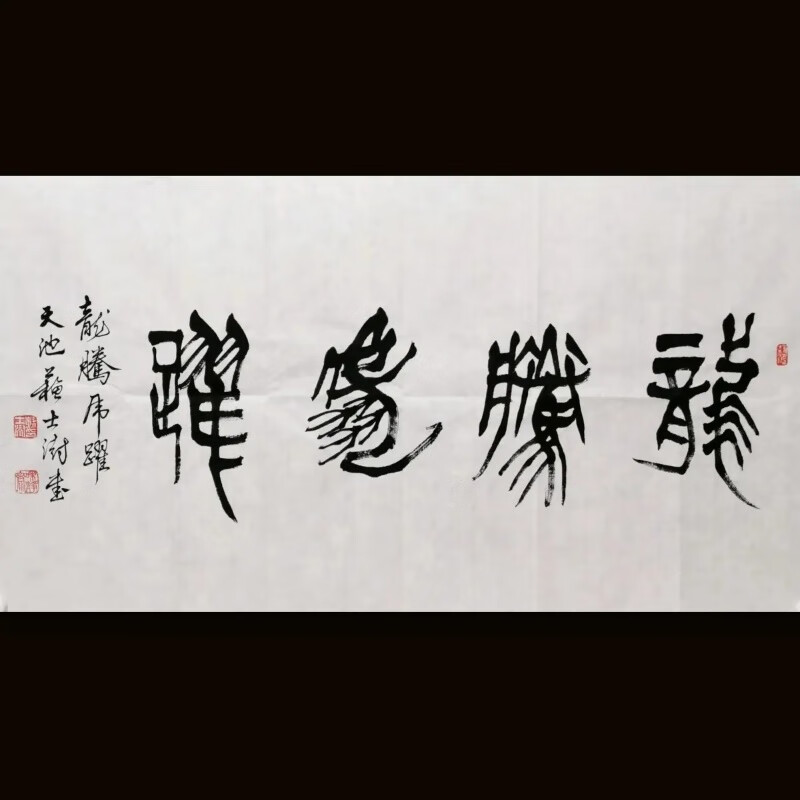 龍騰虎躍
龍騰虎躍
天池蘇士澍書